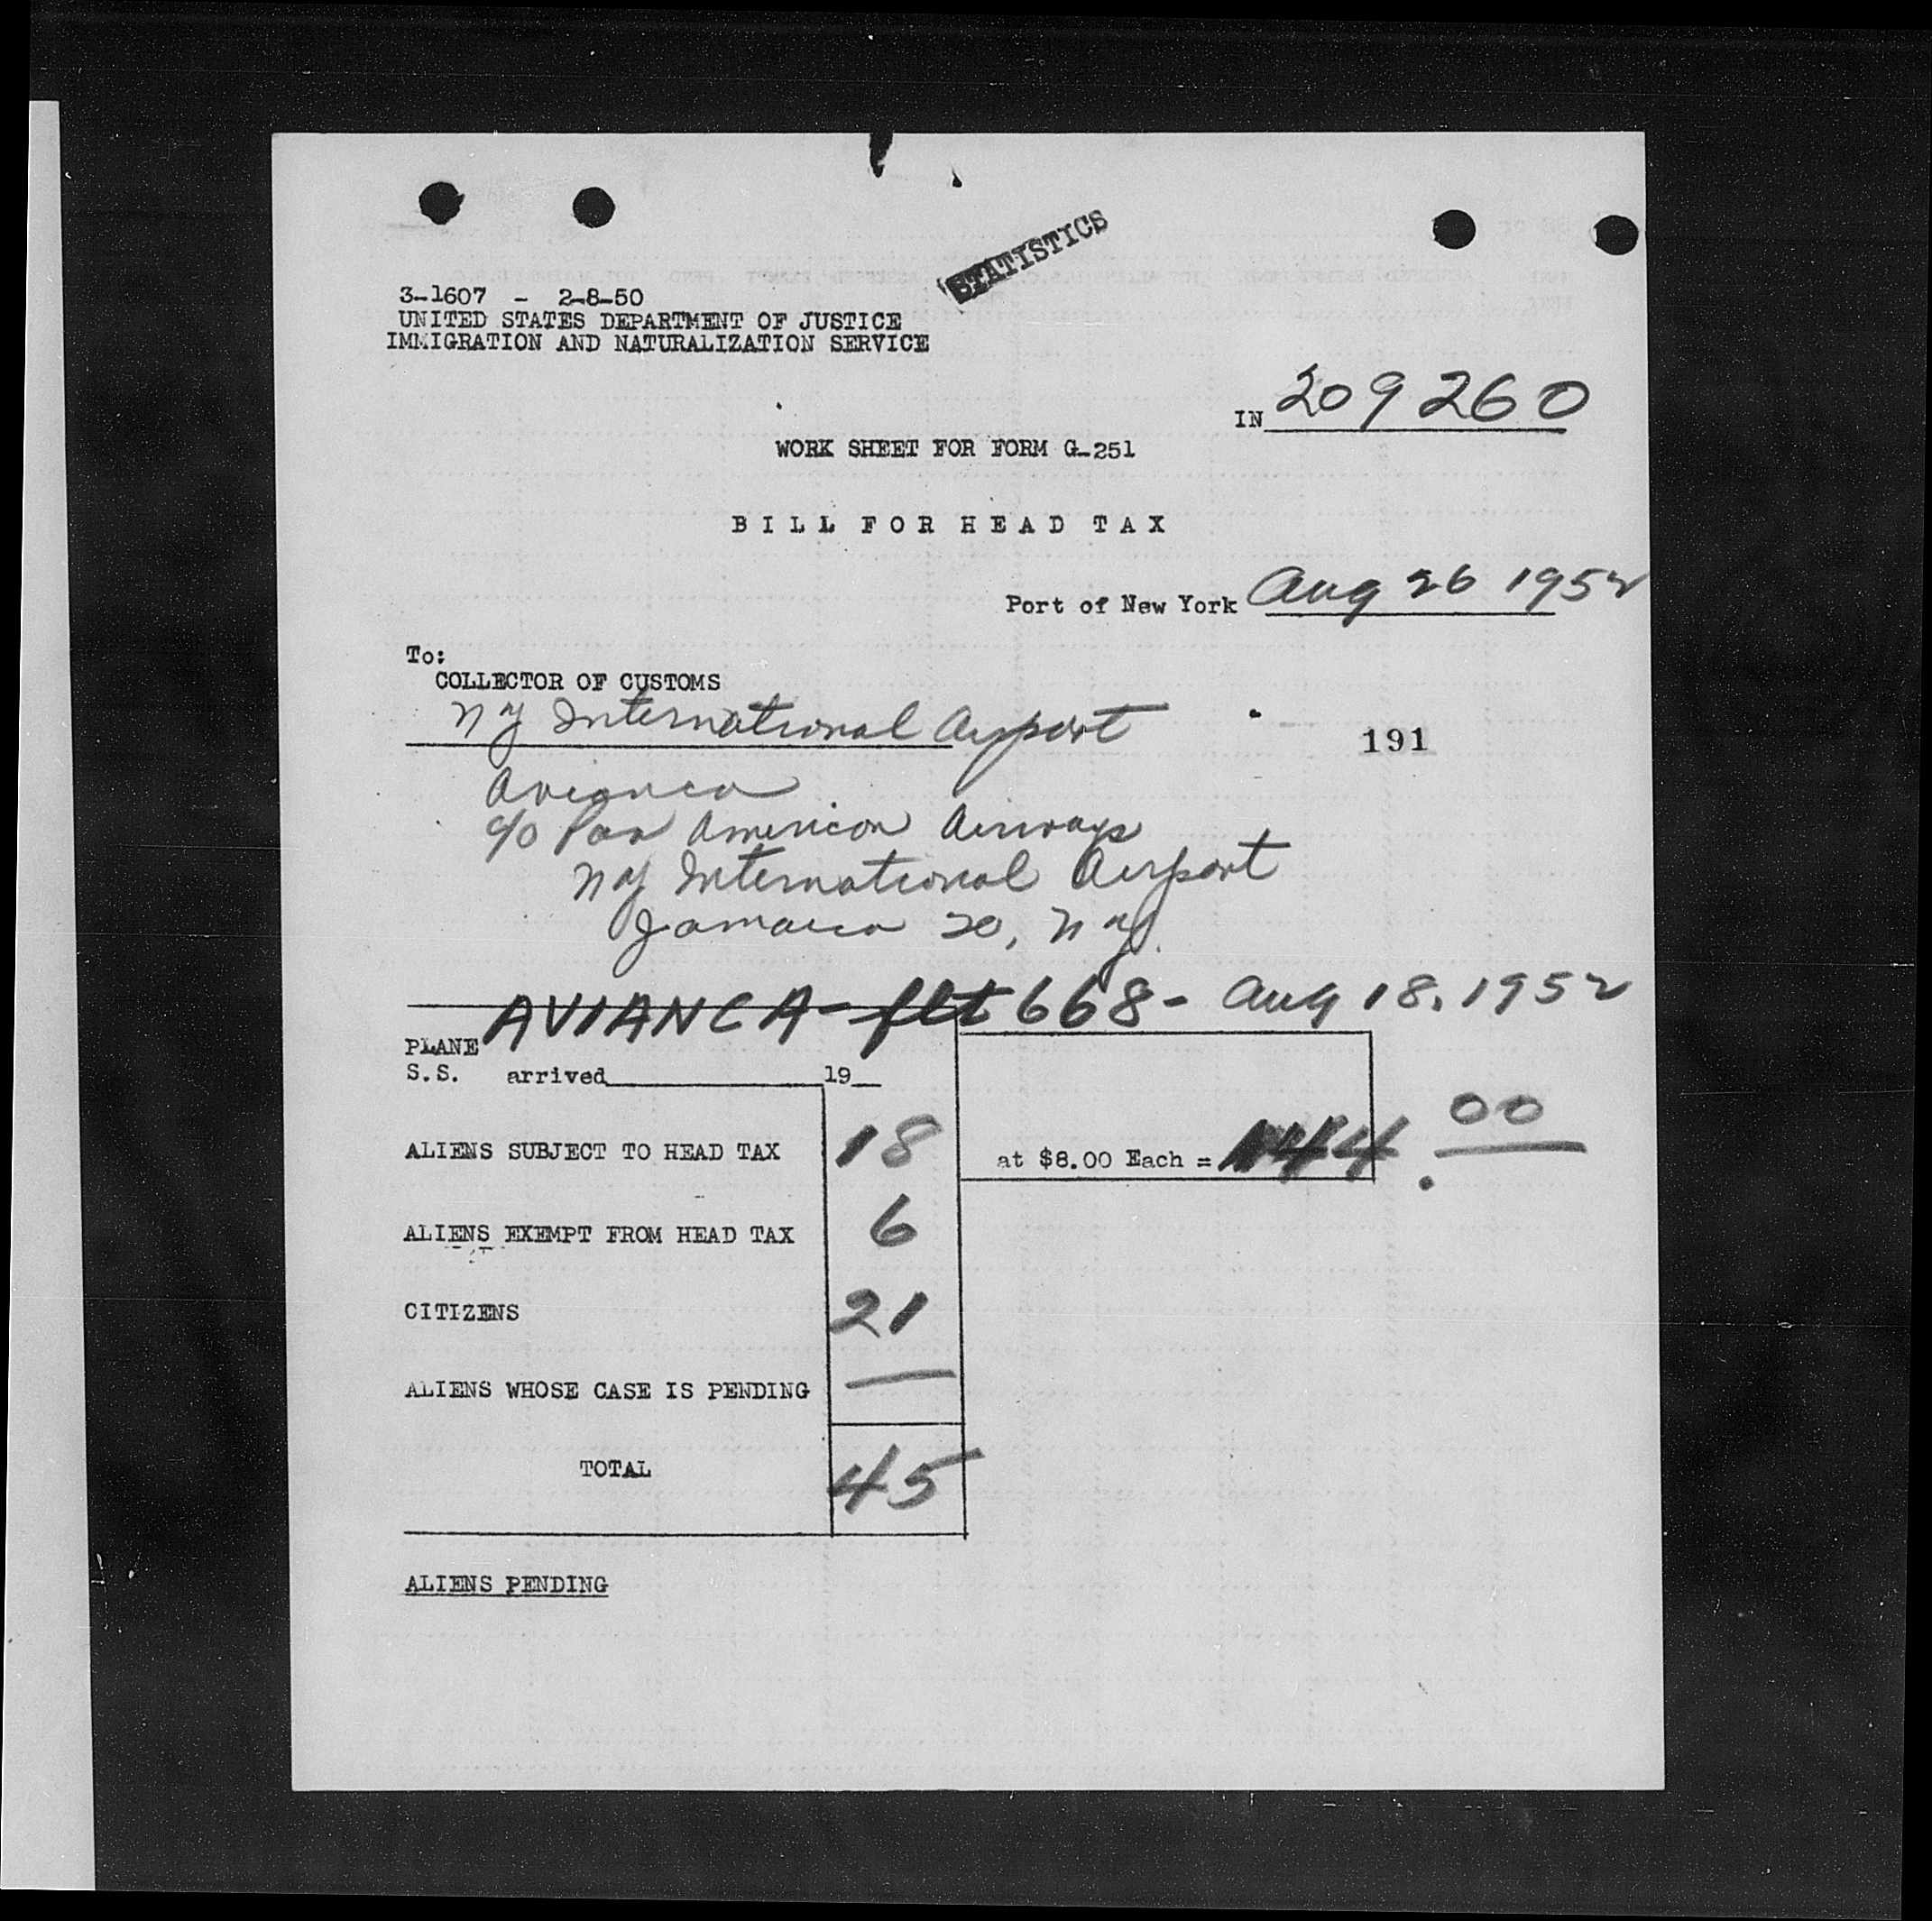 STATISTICS
3-1607 - 2-8-50
UNITED STATES DEPARTMENT OF JUSTICE
IMMIGRATION AND NATURALIZATION SERVICE
IN 209260
WORK SHEET FOR FORM G-251
BILL FOR HEAD TAX
Port of New York Aug 26 1952
To:
COLLECTOR OF CUSTOMS
NY International Airport
191
Avianca
c/o Pan American Airways
NY International Airport
Jamaica 20, NY.
AVIANCA - flt 668 - Aug 18, 1952
PLANE
S.S. arrived 19
ALIENS SUBJECT TO HEAD TAX 18 at $8.00 Each = 144.00
ALIENS EXEMPT FROM HEAD TAX 6
CITIZENS 21
ALIENS WHOSE CASE IS PENDING —
TOTAL 45
ALIENS PENDING